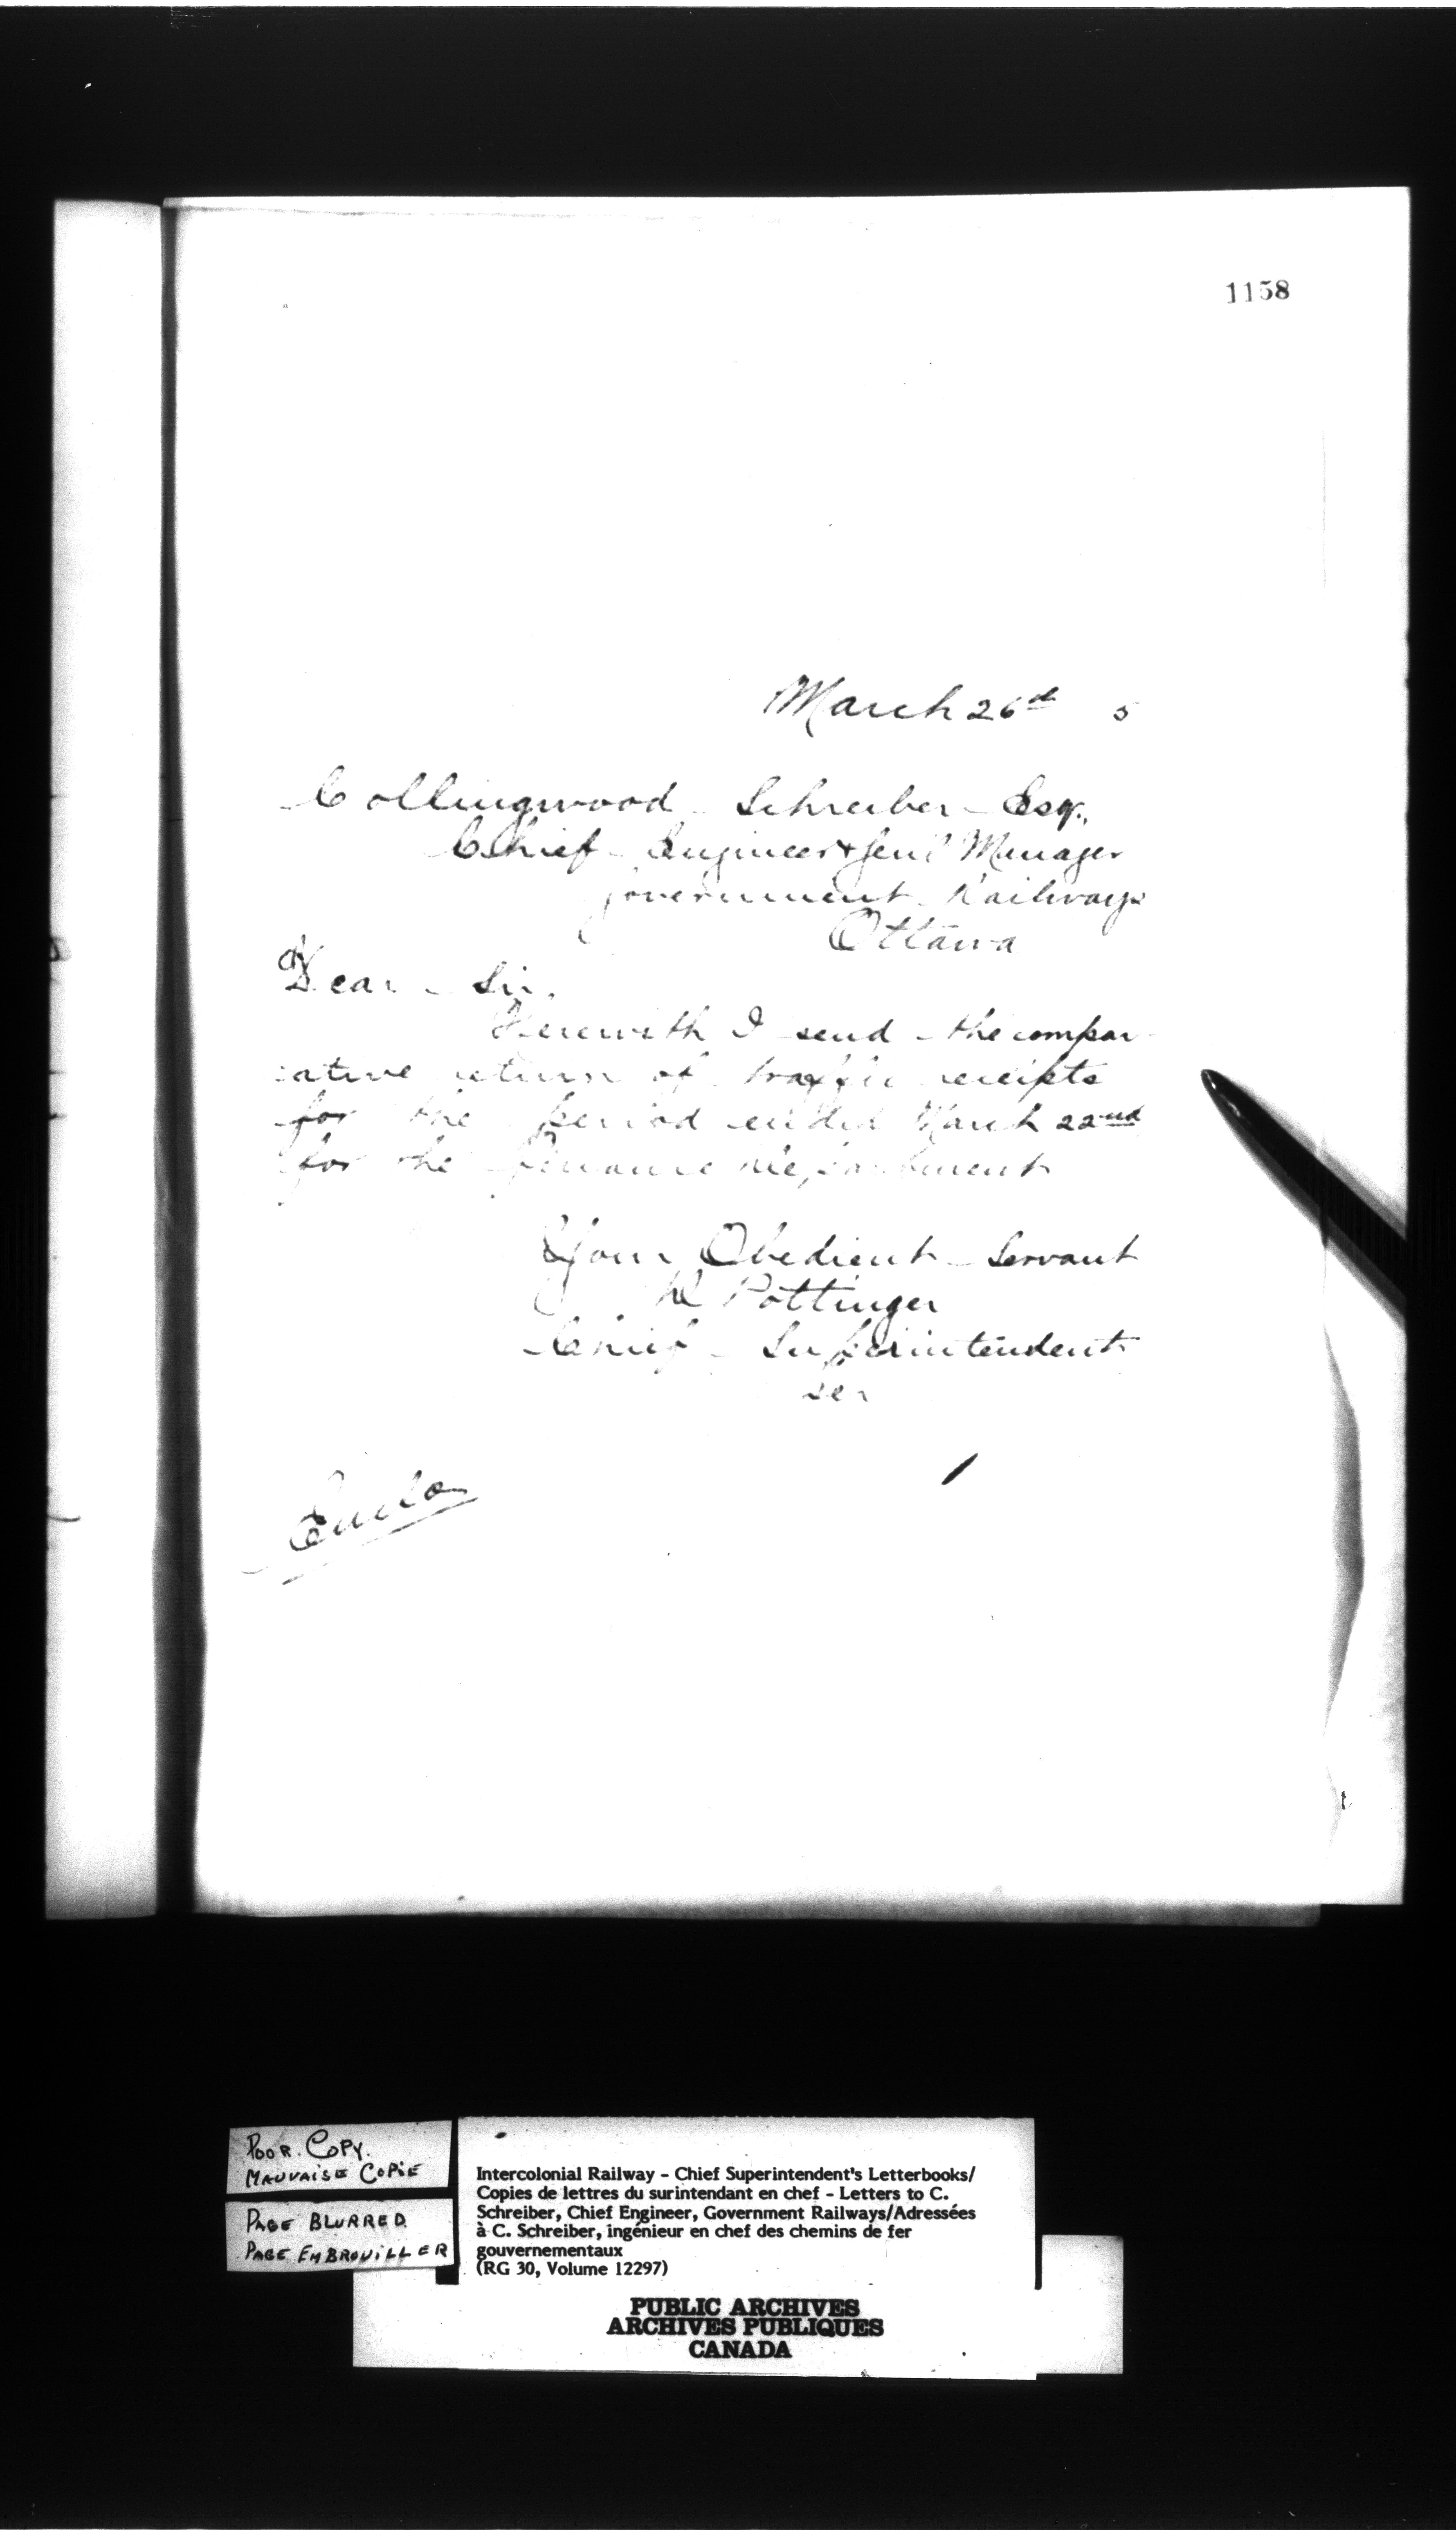 1158
March 26th 5
Collingwood Schreiber Esq.
Chief Engineer & Genl Manager
Government Railways
Ottawa
Dear Sir,
Herewith I send the compar
ative return of traffic receipts
for the period ended March 22nd
for the Finance Department
Your Obedient Servant
D Pottinger
Chief Superintendent
Enclo
POOR COPY.
MAUVAISE COPIE
PAGE BLURRED
PAGE EMBROUILLER
Intercolonial Railway - Chief Superintendent's Letterbooks/
Copies de lettres du surintendant en chef - Letters to C.
Schreiber, Chief Engineer, Government Railways/Adressées
à C. Schreiber, ingénieur en chef des chemins de fer
gouvernementaux
(RG 30, Volume 12297)
PUBLIC ARCHIVES
ARCHIVES PUBLIQUES
CANADA